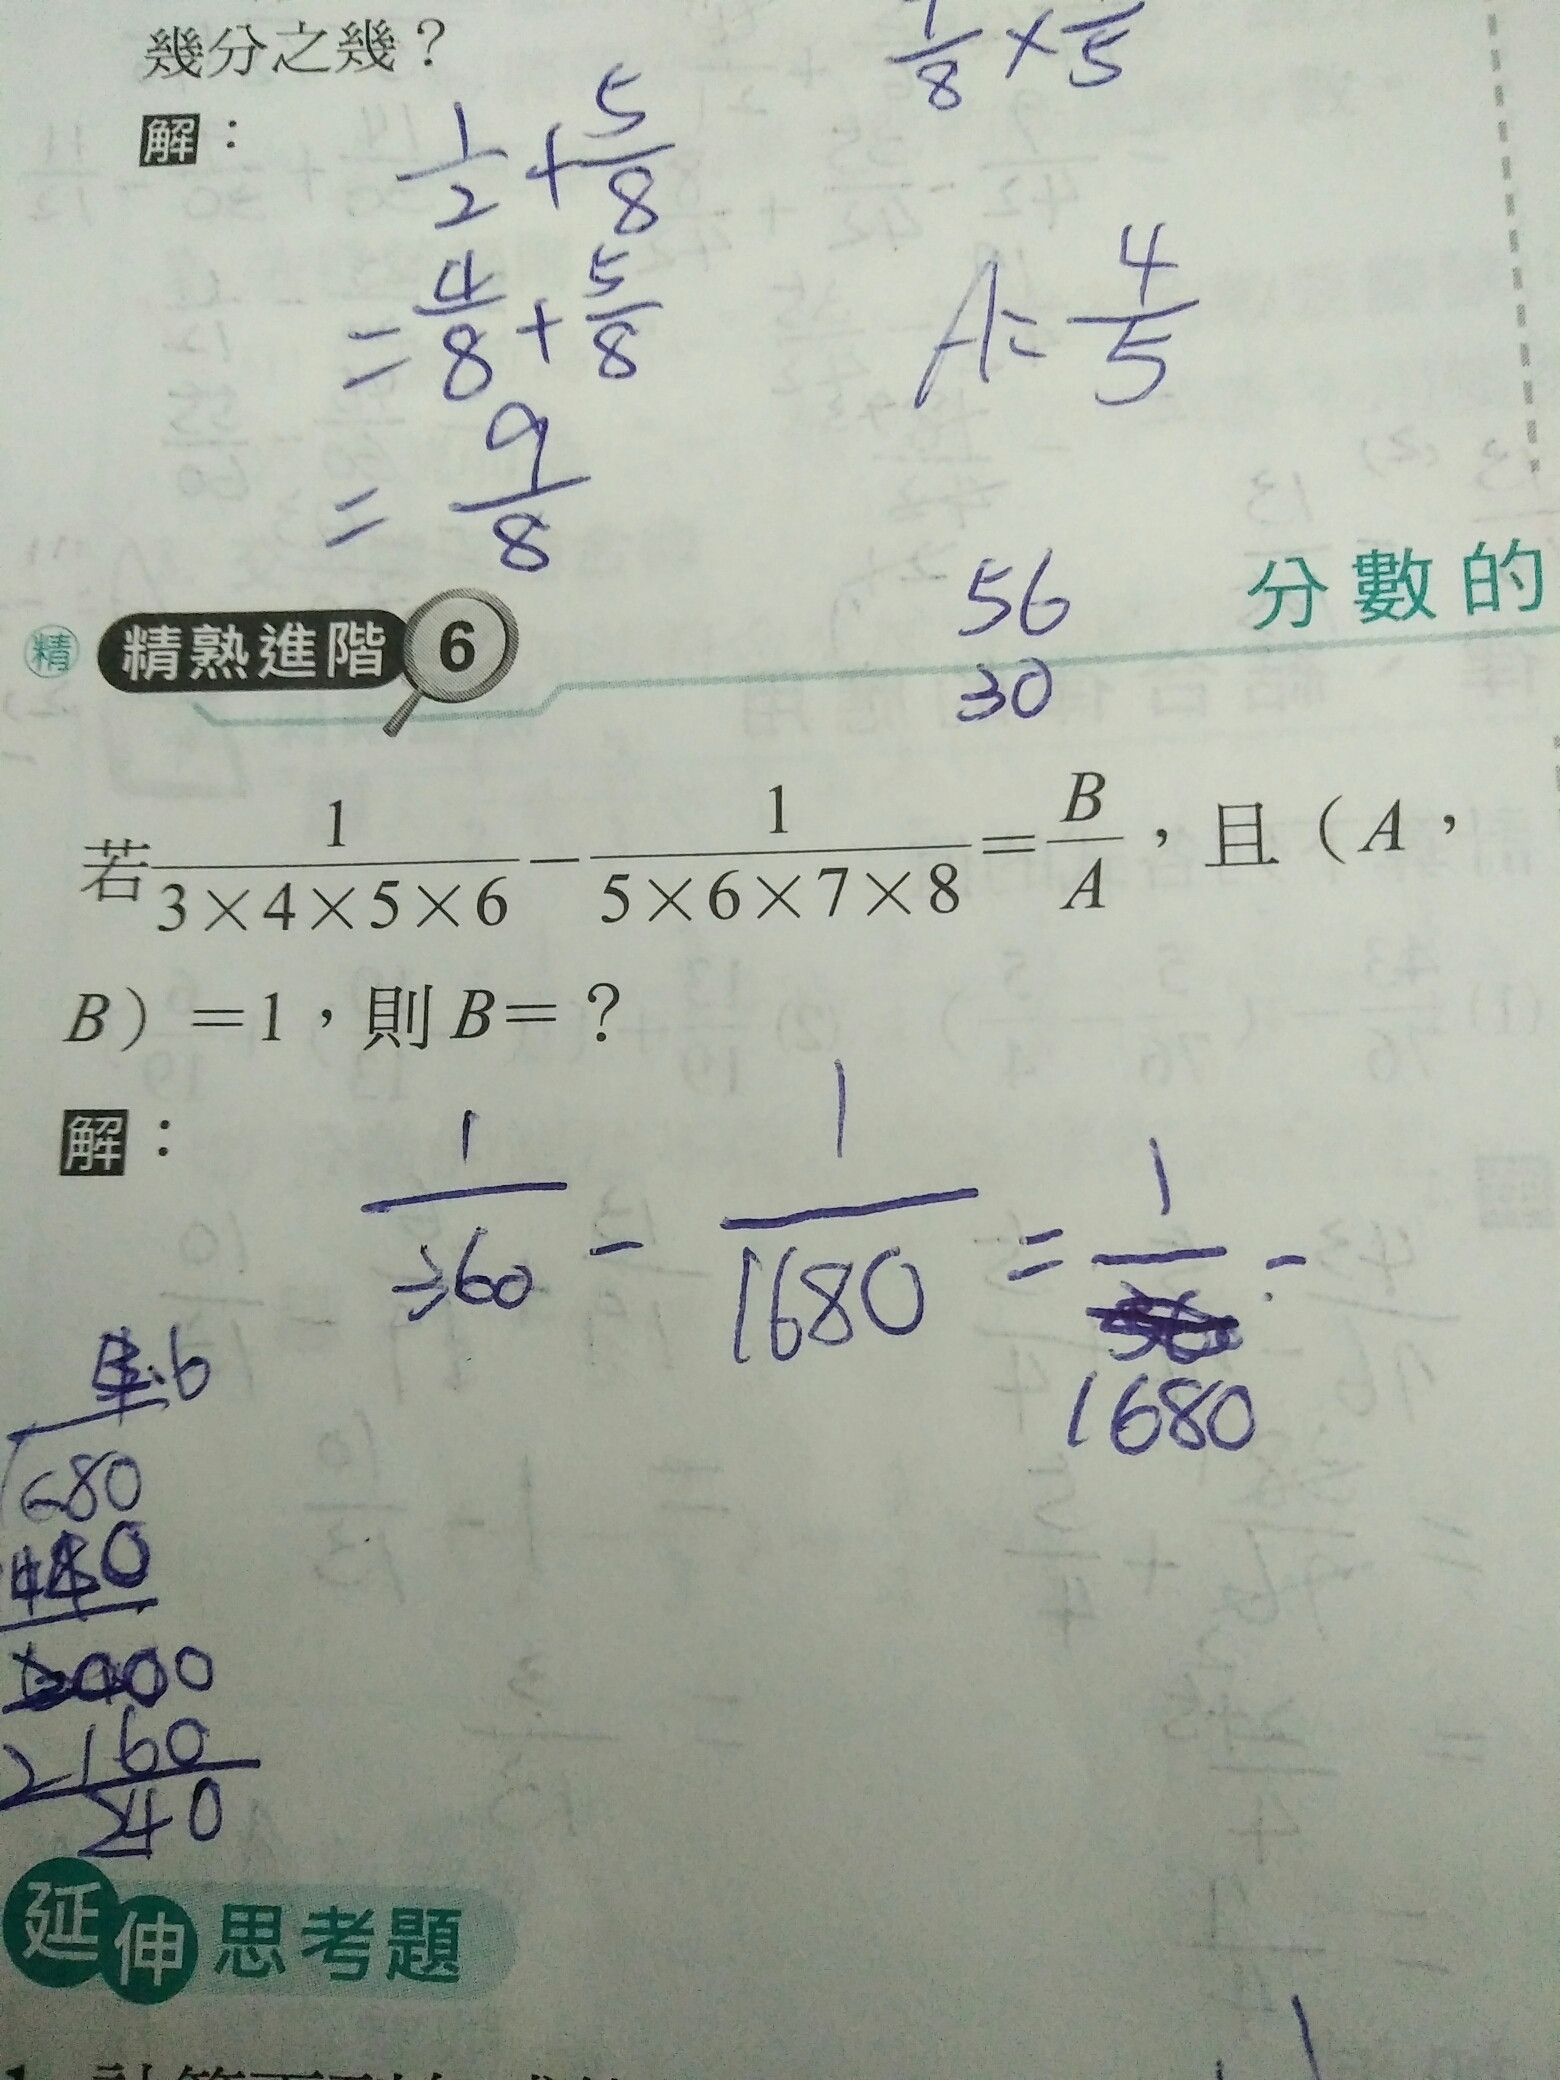 幾分之幾？
1/8 × /5
解：
1/2 + 5/8
= 4/8 + 5/8
A = 4/5
= 9/8
56
30
分數的
精 精熟進階 6
若 1/(3×4×5×6) − 1/(5×6×7×8) = B/A，且（A，
B）=1，則 B=？
解：
1/360 − 1/1680 = 1/1680 -
.6
680
0
2160
240
延伸思考題